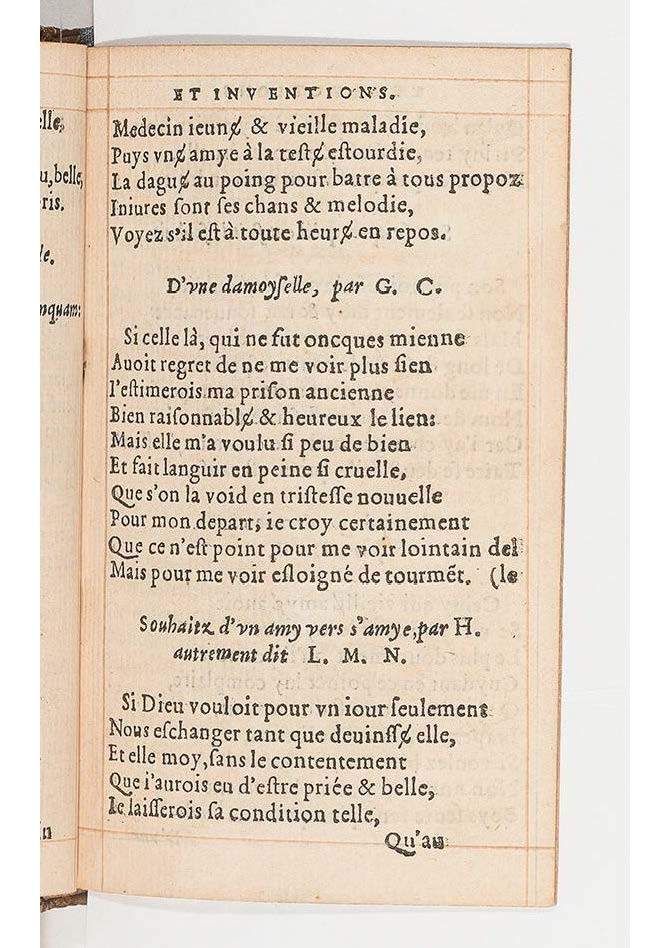 lle,
u, belle,
ris.
le.
nquam:
ET INVENTIONS.
Medecin ieunɇ & vieille maladie,
Puys vnɇ amye à la testɇ estourdie,
La daguɇ au poing pour batre à tous propoz
Iniures sont ses chans & melodie,
Voyez s'il est à toute heurɇ en repos.
D'vne damoyselle, par G. C.
Si celle là, qui ne fut oncques mienne
Auoit regret de ne me voir plus sien
I'estimerois ma prison ancienne
Bien raisonnablɇ & heureux le lien:
Mais elle m'a voulu si peu de bien
Et fait languir en peine si cruelle,
Que s'on la void en tristesse nouuelle
Pour mon depart, ie croy certainement
Que ce n'est point pour me voir lointain del
Mais pour me voir esloigné de tourmẽt. (le
Souhaitz d'vn amy vers s'amye, par H.
autrement dit L. M. N.
Si Dieu vouloit pour vn iour seulement
Nous eschanger tant que deuinssɇ elle,
Et elle moy, sans le contentement
Que i'aurois eu d'estre priée & belle,
Ie laisserois sa condition telle,
Qu'au